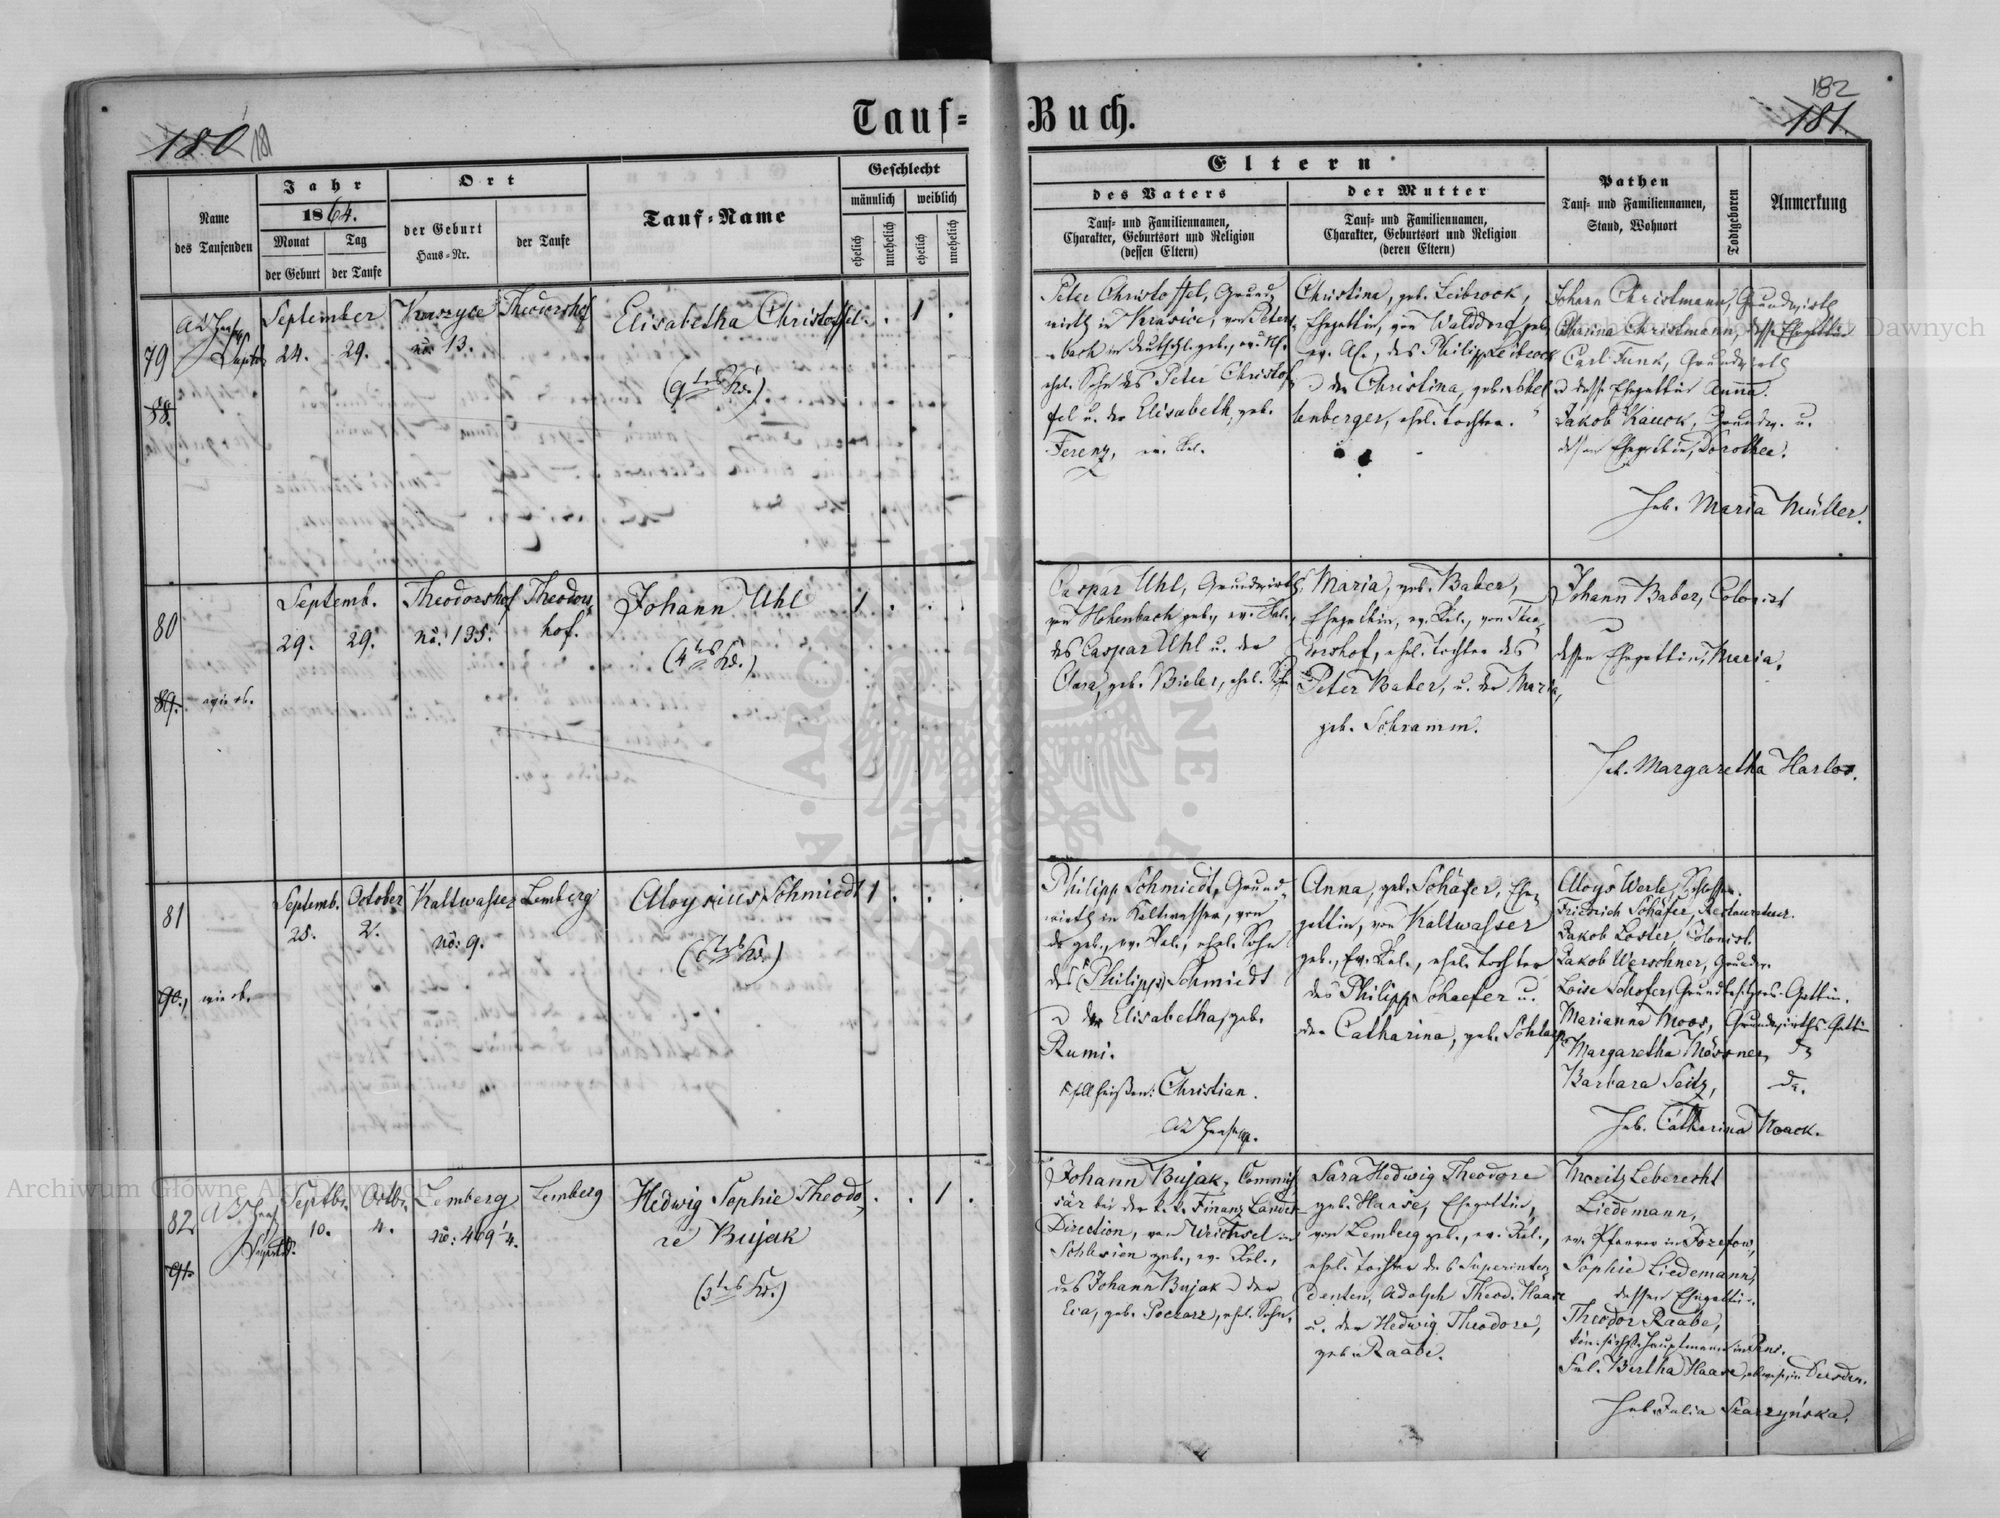 Tauf-Buch.
180 181
182
181.
Name
des Taufenden
Jahr
1864.
Monat
Tag
der Geburt
der Taufe
Ort
der Geburt
Haus-Nr.
der Taufe
Tauf-Name
Geschlecht
männlich
weiblich
ehelich
unehelich
ehelich
unehelich
Eltern
des Vaters
Tauf- und Familiennamen,
Charakter, Geburtsort und Religion
(dessen Eltern)
der Mutter
Tauf- und Familiennamen,
Charakter, Geburtsort und Religion
(deren Eltern)
Pathen
Tauf- und Familiennamen,
Stand, Wohnort
Todtgeboren
Anmerkung
79
88.
September
24. 29.
No. 13.
Theodorshof
Elisabetha Christoffel
(9tes Kd.)
1
Peter Christoffel, Grund-
wirth in Krasice, von Peters-
bach in Deutschl. geb., ev.
ehel. Sohn des Peter Christof
fel u. der Elisabeth, geb.
Ferenz, ev. Rel.
Christina, geb. Leibrock,
Ehegattin, von Walddorf geb.,
ev. des Philipp Leibrock
u der Christina, geb. Schel
lenberger, ehel. Tochter.
Johann Christmann, Grundwirth
Catharina Christmann, dess. Ehegattin
Carl Funk, Grundwirth
u dess. Ehegattin Anna.
Jakob Kauck, Grundw. u.
dessen Ehegattin, Dorothea.
Heb. Maria Müller.
80
89.
wie ob.
Septemb.
29. 29.
Theodorshof
No. 135.
Theodors
hof.
Johann Uhl
(4tes Kd.)
1
Caspar Uhl, Grundwirth
von Hohenbach geb., ev. Rel.,
des Caspar Uhl u. der
Clara, geb. Bieler, ehel. Sohn
Maria, geb. Baber,
Ehegattin, ev. Rel., von Theo-
dorshof, ehel. Tochter des
Peter Baber, u. der Maria,
geb. Schramm.
Johann Baber, Colonist
dessen Ehegattin, Maria.
Heb. Margaretha Harlos.
81
90.
wie ob.
Septemb. October
28. 2.
Kaltwasser
No: 9.
Lemberg
Aloysius Schmiedt
(6tes Kd.)
1
Philipp Schmiedt, Grund-
wirth in Kaltwasser, von
da geb., ev. Rel., ehel. Sohn
des (Philipp) Schmiedt
u der Elisabetha, geb.
Rumi.
soll heißen: Christian.
Anna, geb. Schäfer, Ehe-
gattin, von Kaltwasser
geb., Ev. Rel., ehel. Tochter
des Philipp Schaefer u.
der Catharina, geb.
Aloys Werle,
Friedrich Schäfer, Restaurateur.
Jakob Koster, Colonist.
Jakob Werschner, Grundw.
Loise Schofer, Grundbesitzers-Gattin.
Marianna Moos, Grundwirths-Gattin
Margaretha Mössner, do
Barbara Seitz, do.
Heb. Catharina Noack.
82
91.
Septbr. Octbr.
10. 4.
Lemberg
No: 469 1/4.
Lemberg
Hedwig Sophie Theodo
re Bujak
(3tes Kd.)
1
Johann Bujak, Commis
sär bei der k. k. Finanz Landes
Direction, von Weichsel in
Schlesien geb., ev. Rel.,
des Johann Bujak u der
Eva, geb. ehel. Sohn.
Sara Hedwig Theodore
geb. Haase, Ehegattin,
von Lemberg geb., ev. Rel.,
ehel. Tochter des Superinten-
denten, Adolph Theod. Haase
u. der Hedwig Theodore,
geb. Raabe.
Moritz Leberecht
Liedemann,
ev. Pfarrer in Josefow,
Sophie Liedemann,
dessen Ehegattin.
Theodor Raabe,
kön. sächs. Hauptmann in Pens.
Frl. Bertha Haase, in Dresden.
Heb. Julia Skarzyńska.
Archiwum Główne Akt Dawnych
Archiwum Główne Akt Dawnych